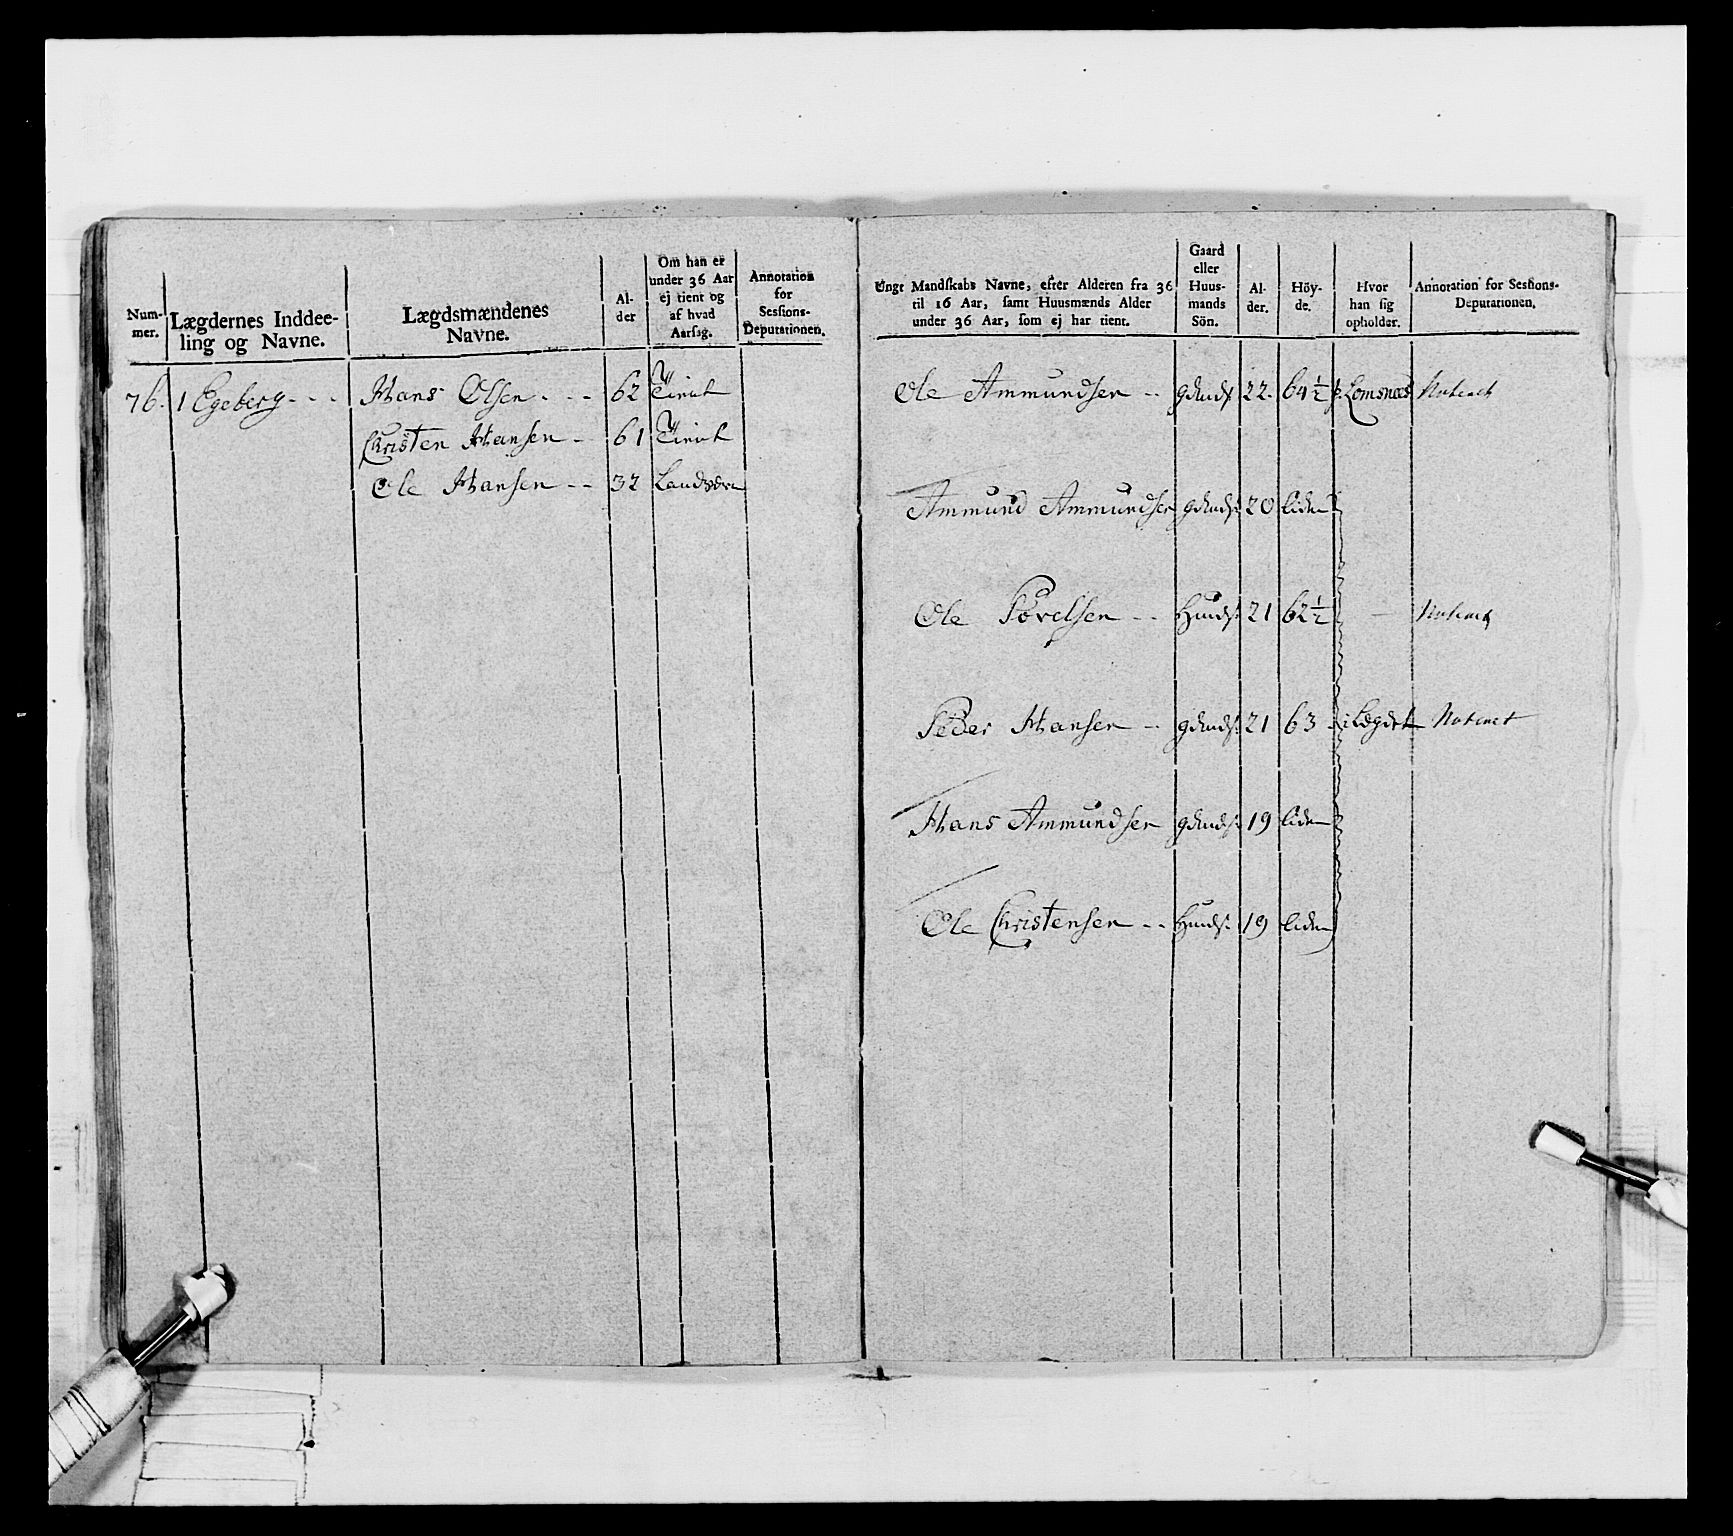 Num-
mer.
Lægdernes Inddee-
ling og Navne.
Lægdsmændenes
Navne.
Al-
der
Om han er
under 36 Aar
ej tient og
af hvad
Aarsag.
Annotation
for
Sessions-
Deputationen.
76. 1 Egeberg - - - Hans Olsen - - - 62 Tient
Christen Hansen - - 61 Tient
Ole Hansen - - 32
Ungt Mandskabs Navne, efter Alderen fra 36
til 16 Aar, samt Huusmænds Alder
under 36 Aar, som ej har tient.
Gaard
eller
Huus-
mands
Sön.
Al-
der.
Höy-
de.
Hvor
han sig
opholder.
Annotation for Sessions-
Deputationen.
Ole Ammundsen - - 22. 64 ½ Lomsnæs Noteret
Ammund Ammundsen 20 liden
Ole Povelsen - - 21 62 ½ — Noteret
Peder Hansen - - 21 63 i Lægdet Noteret
Hans Ammundsen 19 liden
Ole Christensen - - 19 liden